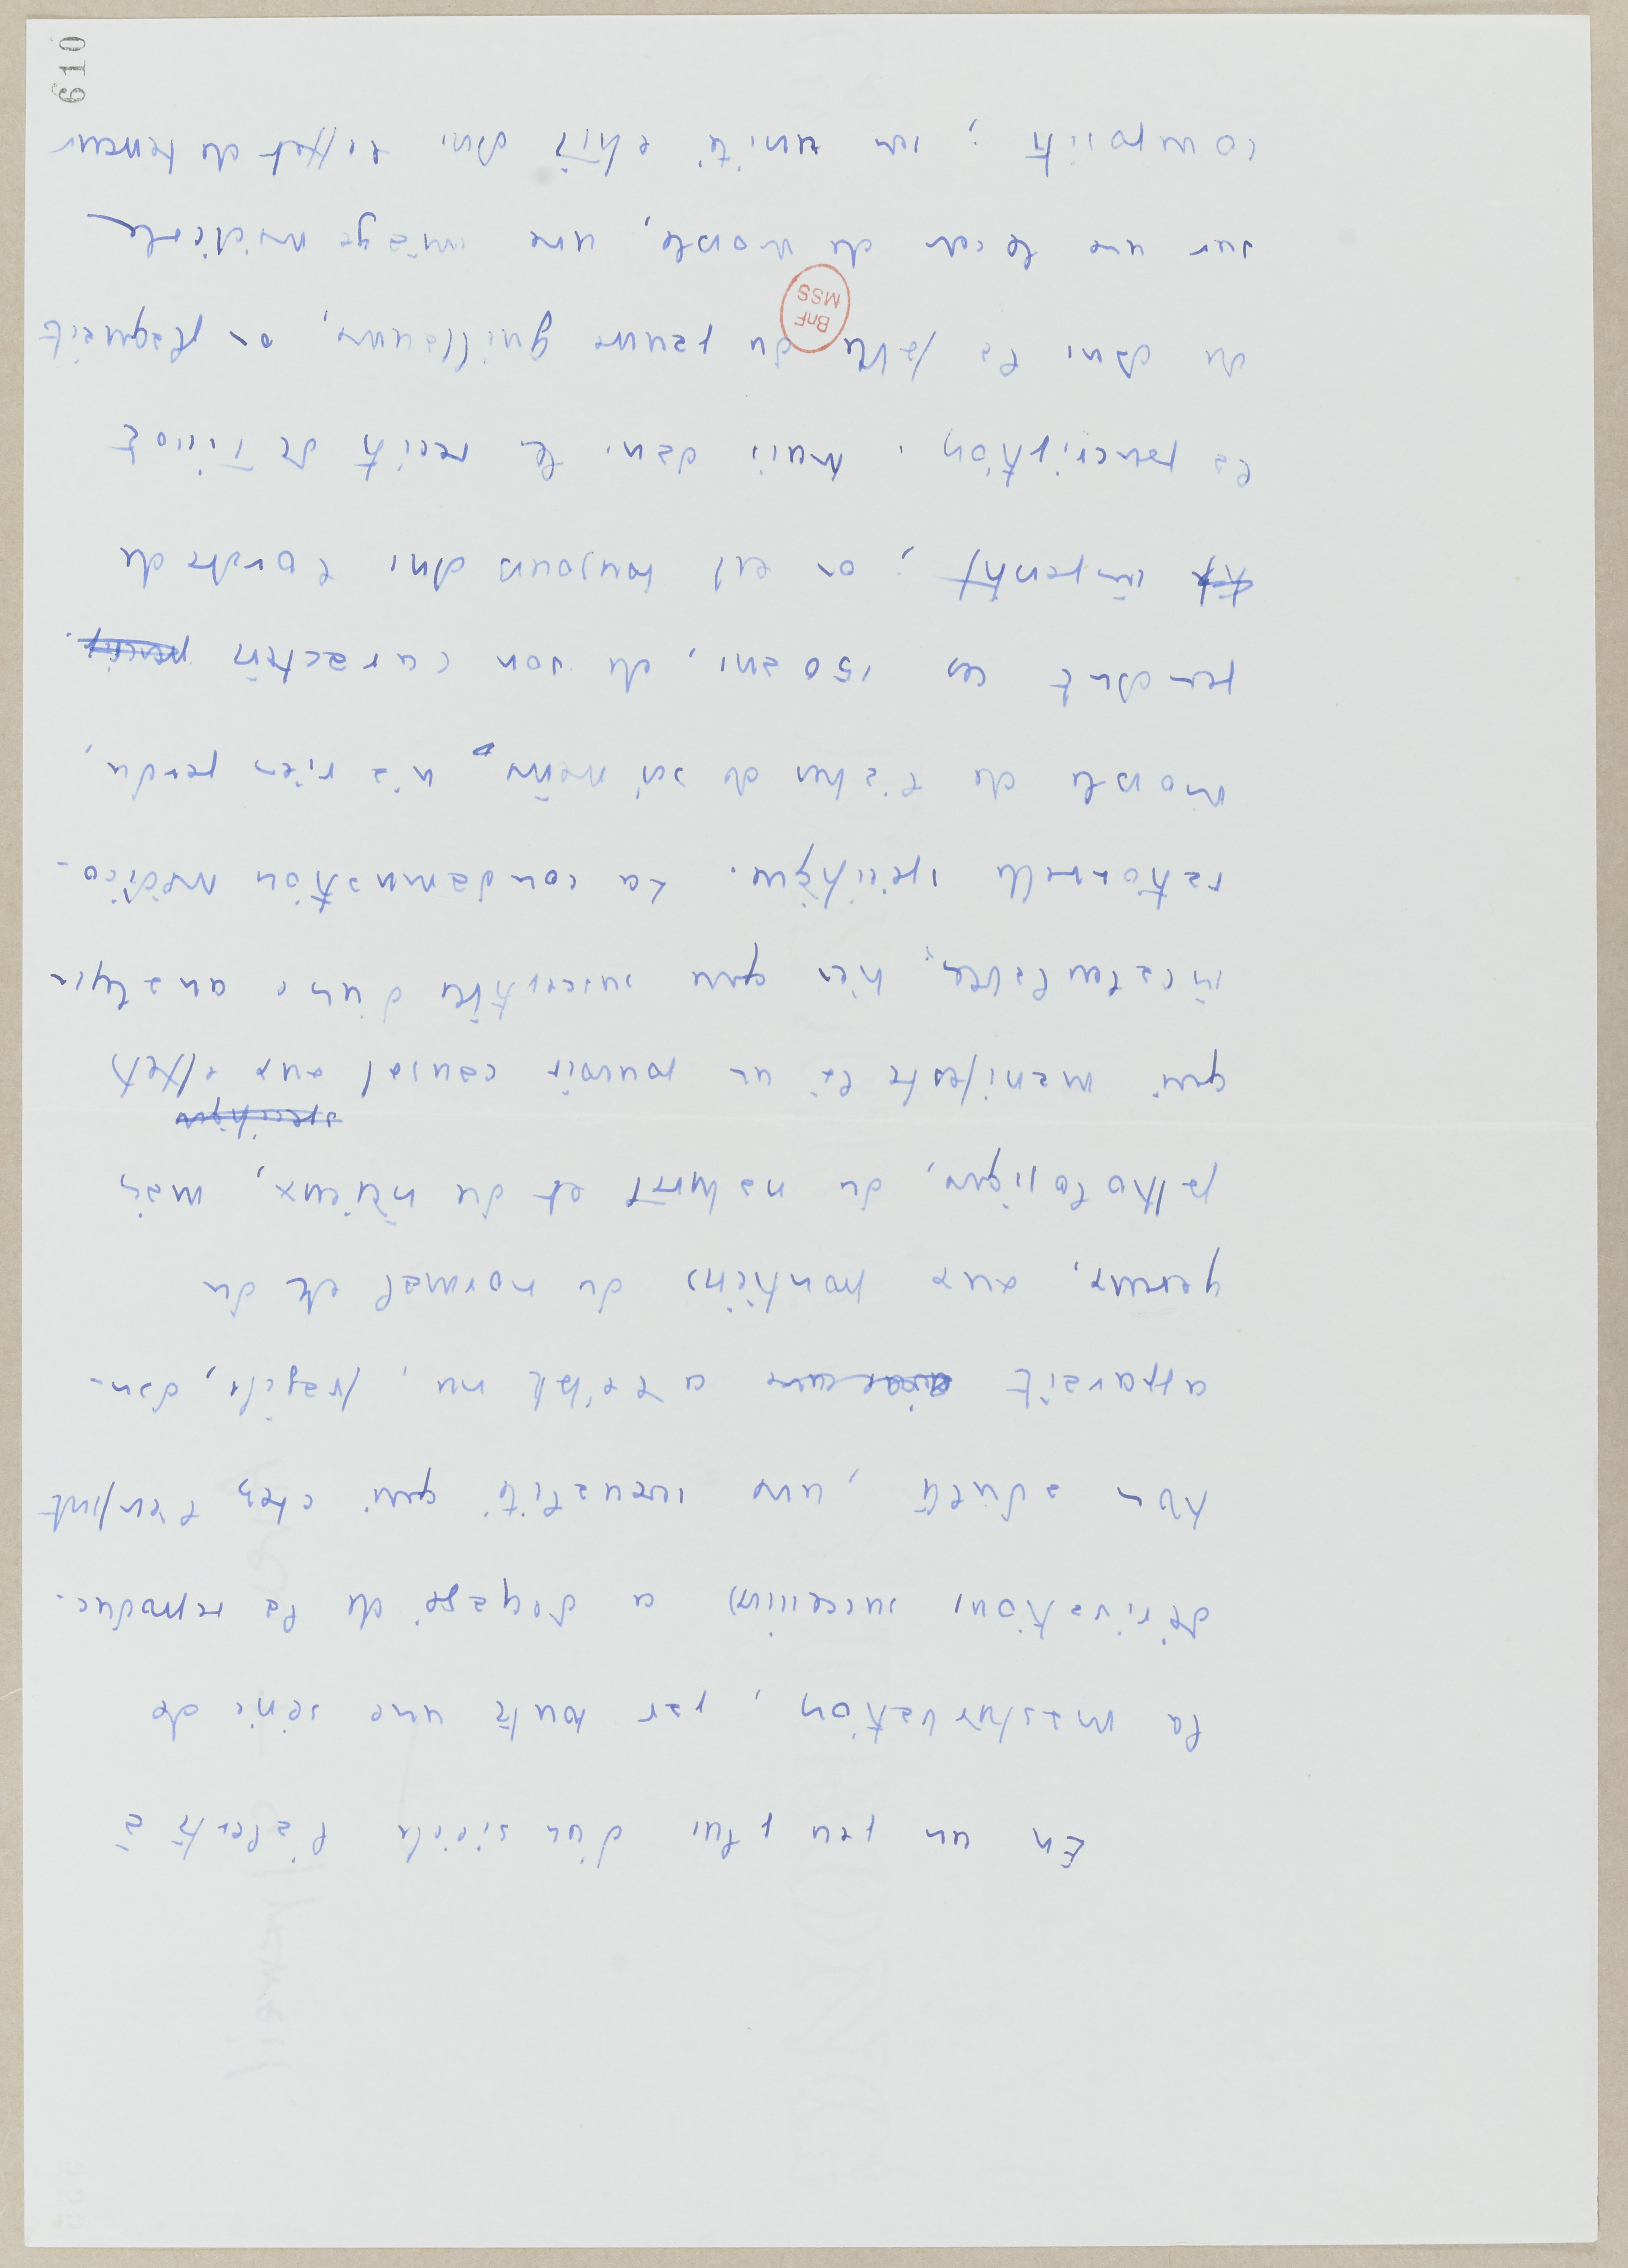 En un peu plus d'un siècle l'alerte à
la masturbation, par toute une série de
dérivations successives a dégagé de la reproduc-
tion adulte, une sexualité qui chez l'enfant
apparait a l'état nu, fragile, dan-
gereux, aux frontières du normal et du
pathologique, du naturel et du vicieux, mais
qui manifeste là un pouvoir causal aux effets
incalculables, bien que susceptible d'une analyse
rationnelle spécifique. La condamnation médico-
morale de l'abus de soi même n'a rien perdu,
pendant ces 150 ans, de son caractère
impératif ; on est toujours dans l'ordre de
la prescription. Mais dans le récit de Tissot
ou dans la fable du pauvre Guillaume, on plaquait
sur une leçon de morale, une image médicale
complexe ; son unité était dans l'effet de terreur
BnF
MSS
610